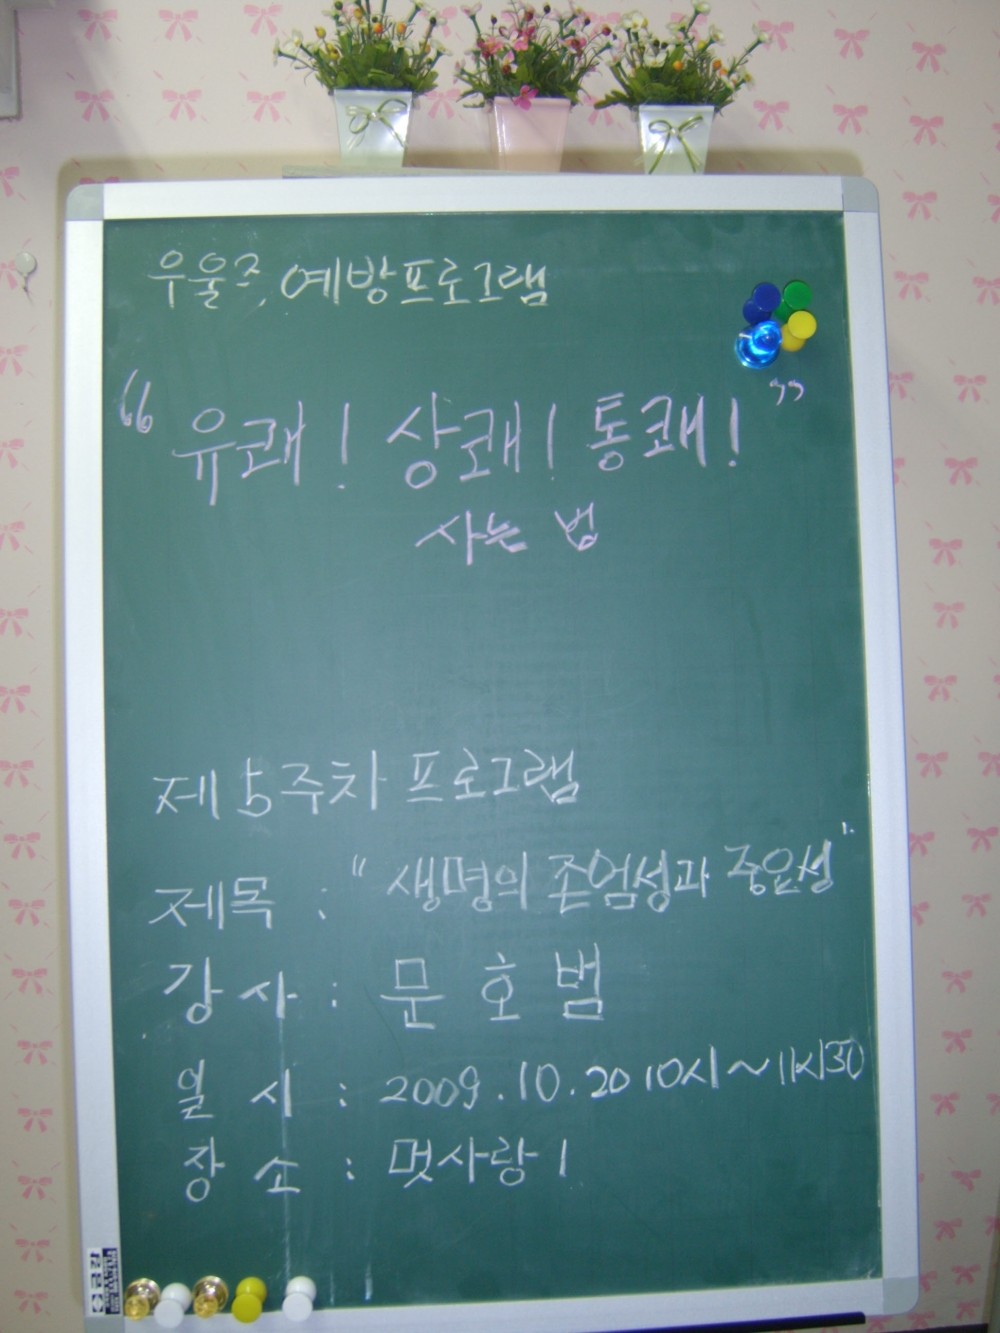 우울증 예방프로그램
"유쾌! 상쾌! 통쾌!"
사는 법
제5주차 프로그램
제목 : "생명의 존엄성과 중요성"
강사 : 문호범
일시 : 2009.10.20 10시~11시30
장소 : 멋사랑1